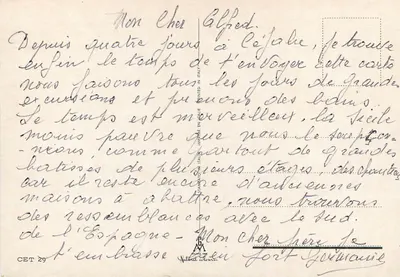 Mon Cher Alfred.
Depuis quatre jours à Céfalu, je trouve
enfin le temps de t'envoyer cette carte
nous faisons tous les jours de grandes
excursions et prenons des bains.
Le temps est merveilleux, la Sicile
moins pauvre que nous le
comme partout de grandes
batisses de plusieurs étages, des
car il reste encore d'anciennes
maisons à abattre, nous trouvons
des ressemblances avec le sud.
de l'Espagne - Mon cher frère je
t'embrasse bien fort Germaine
CET 29